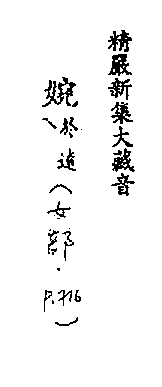 精嚴新集大藏音
婉於遠(女部·P.716)